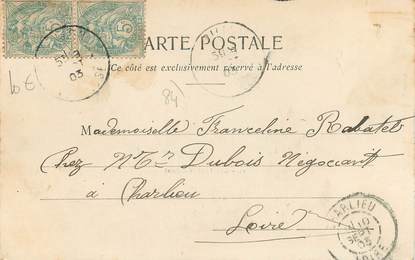 CARTE POSTALE
Ce côté est exclusivement réservé à l'adresse
84
Mademoiselle Franceline Rabatel
Chez Mr Dubois Négociant
à Charlieu
Loire
5 5
03
03
CHARLIEU
03
LOIRE